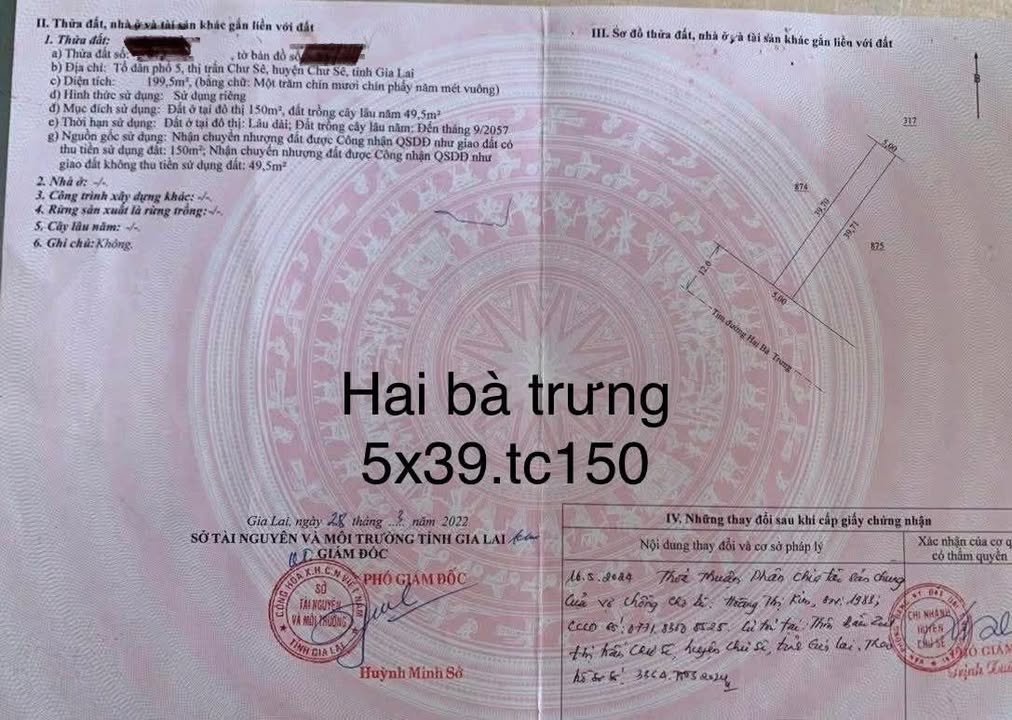 II. Thửa đất, nhà ở và tài sản khác gắn liền với đất
1. Thửa đất:
a) Thửa đất số: , tờ bản đồ số
b) Địa chỉ: Tổ dân phố 5, thị trấn Chư Sê, huyện Chư Sê, tỉnh Gia Lai
c) Diện tích: 199,5m², (bằng chữ: Một trăm chín mươi chín phẩy năm mét vuông)
d) Hình thức sử dụng: Sử dụng riêng
đ) Mục đích sử dụng: Đất ở tại đô thị 150m², đất trồng cây lâu năm 49,5m²
e) Thời hạn sử dụng: Đất ở tại đô thị: Lâu dài; Đất trồng cây lâu năm: Đến tháng 9/2057
g) Nguồn gốc sử dụng: Nhận chuyển nhượng đất được Công nhận QSDĐ như giao đất có
thu tiền sử dụng đất: 150m²; Nhận chuyển nhượng đất được Công nhận QSDĐ như
giao đất không thu tiền sử dụng đất: 49,5m²
2. Nhà ở: -/-.
3. Công trình xây dựng khác: -/-.
4. Rừng sản xuất là rừng trồng: -/-.
5. Cây lâu năm: -/-.
6. Ghi chú: Không.
III. Sơ đồ thửa đất, nhà ở và tài sản khác gắn liền với đất
B
317
5,00
874
39,70
39,71
875
12.0
5,00
Tim đường Hai Bà Trưng
Hai bà trưng
5x39.tc150
Gia Lai, ngày 28 tháng 3 năm 2022
SỞ TÀI NGUYÊN VÀ MÔI TRƯỜNG TỈNH GIA LAI
GIÁM ĐỐC
PHÓ GIÁM ĐỐC
CỘNG HÒA X.H.C.N VIỆT NAM
SỞ
TÀI NGUYÊN
VÀ MÔI TRƯỜNG
TỈNH GIA LAI
Huỳnh Minh Sở
IV. Những thay đổi sau khi cấp giấy chứng nhận
Nội dung thay đổi và cơ sở pháp lý
Xác nhận của cơ q
có thẩm quyền
16.5.2024 Thoả thuận phân chia tài sản chung
của vợ chồng cho bà: Hoàng Thị
CCCD số: Cư trú tại: Thôn
thị trấn Chư Sê, huyện Chư Sê, tỉnh Gia Lai, Theo
hồ sơ số
CHI NHÁNH
HUYỆN
CHƯ SÊ
PHÓ GIÁM